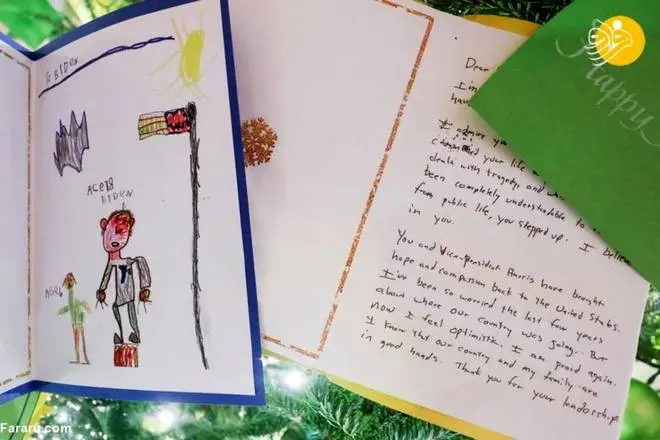 To BIDEN
AGE78
BIDEN
AGE6
Happy
Dear
I'm
hav
I admire you
your life
dealt with tragedy, and
been completely understandable to
from public life, you stepped up. I believe
in you.
You and Vice-president Harris have brought
hope and compassion back to the United States.
I've been so worried the last few years
about where our country was going. But
now I feel optimistic. I am proud again.
I know that our country and my family are
in good hands. Thank you for your leadership
Fararu.com